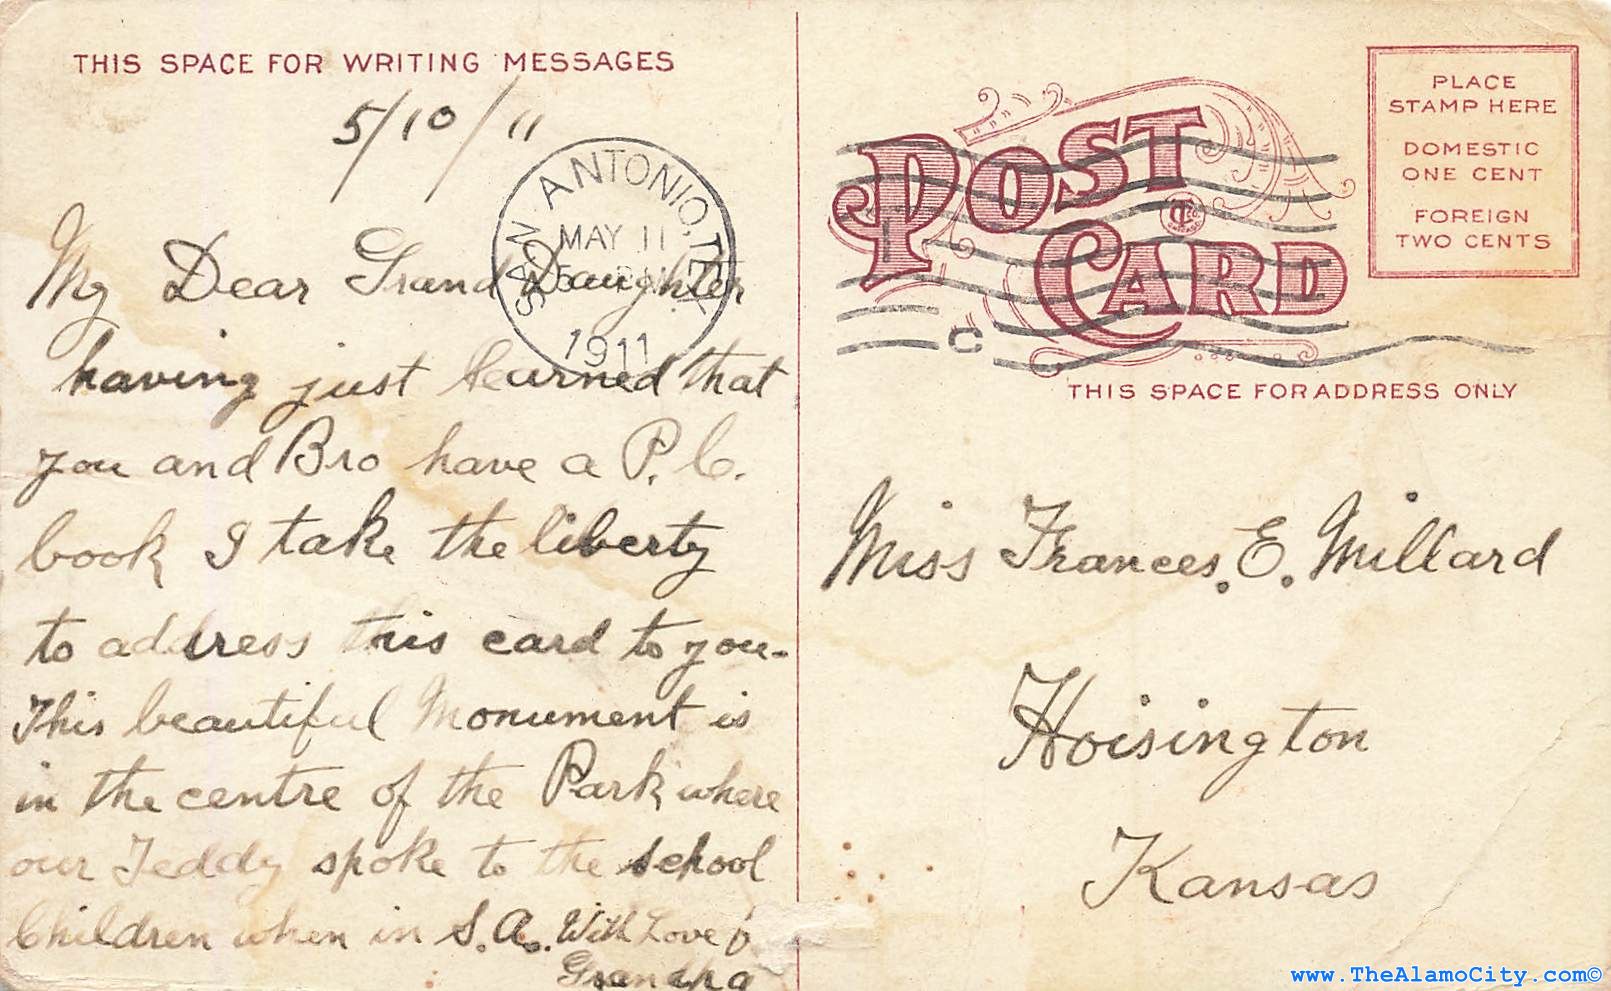 THIS SPACE FOR WRITING MESSAGES
5/10/11
SAN ANTONIO, TEX.
MAY 11
1911
My Dear Grand Daughter
having just learned that
you and Bro have a P.C.
book I take the liberty
to address this card to you-
This beautiful Monument is
in the centre of the Park where
our Teddy spoke to the school
Children when in S.A. With Love
Grandpa
POST
CARD
C
PLACE
STAMP HERE
DOMESTIC
ONE CENT
FOREIGN
TWO CENTS
THIS SPACE FOR ADDRESS ONLY
Miss Frances. E. Millard
Hoisington
Kansas
www.TheAlamoCity.com©